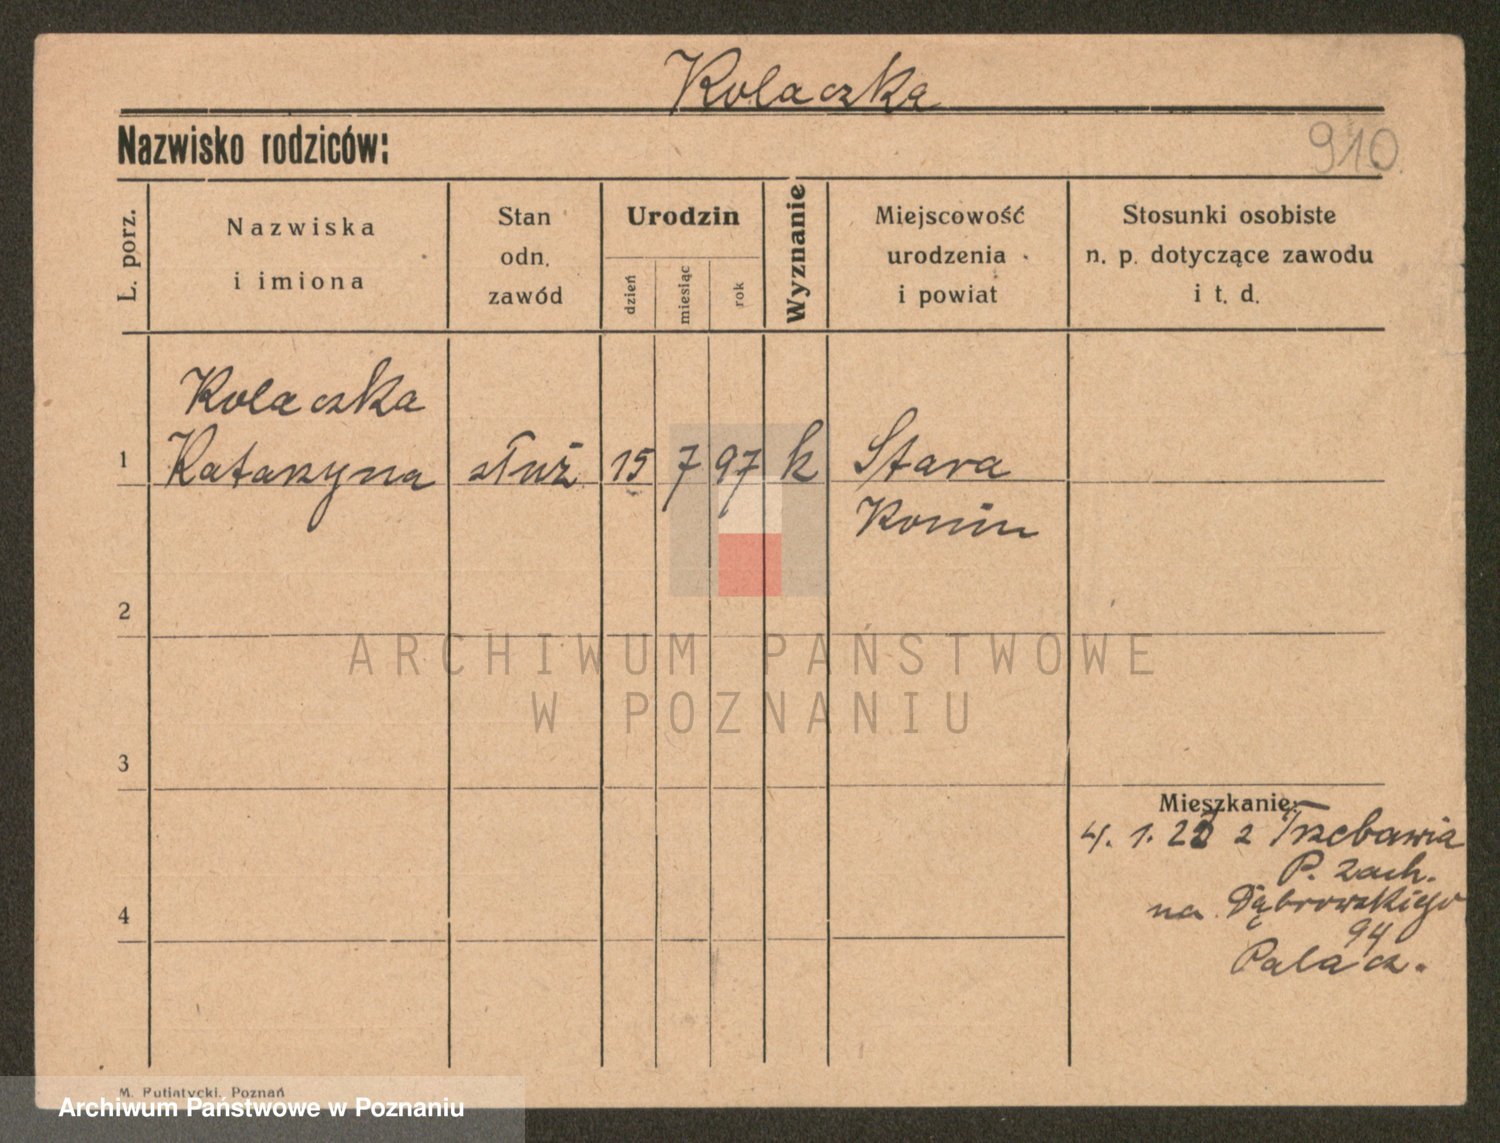 Kolaczka
Nazwisko rodziców:
910
L. porz.
Nazwiska
i imiona
Stan
odn.
zawód
Urodzin
dzień
miesiąc
rok
Wyznanie
Miejscowość
urodzenia
i powiat
Stosunki osobiste
n. p. dotyczące zawodu
i t. d.
Kolaczka
1 Katarzyna służ 15 7 97 k Stara
Konin
2
3
4
Mieszkanie:
4. 1. z Trzebawia
P. zach.
na Dąbrowskiego
94
Palacz.
ARCHIWUM PAŃSTWOWE
W POZNANIU
M. Putiatycki, Poznań
Archiwum Państwowe w Poznaniu